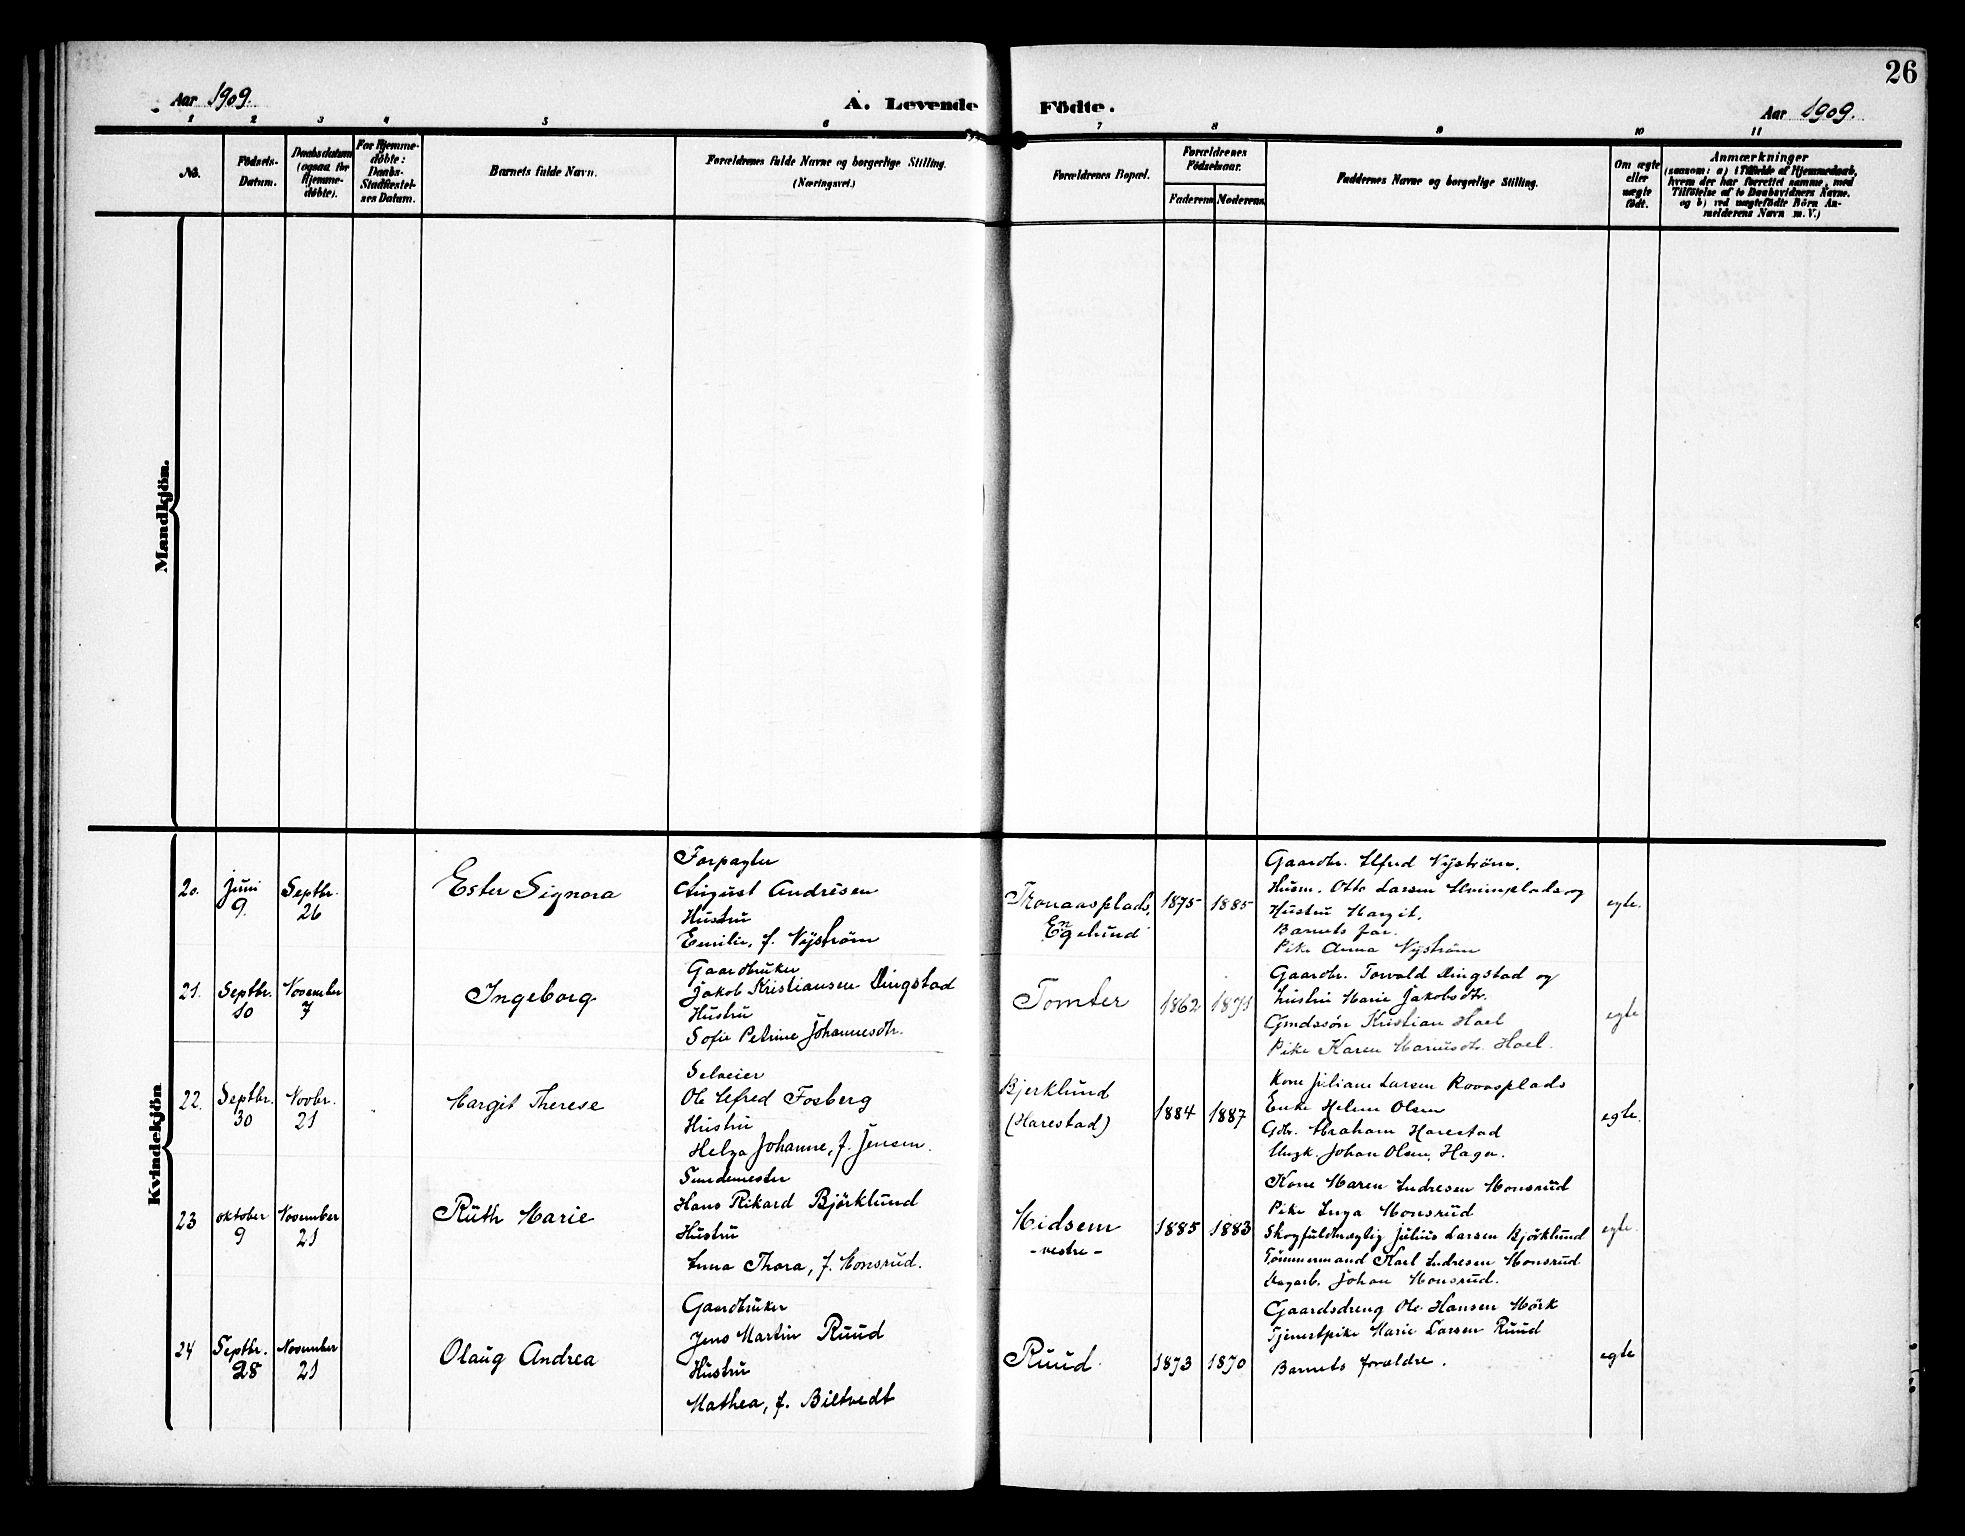 26
Aar 1909.
A. Levende Födte.
Aar 1909.
1 2 3 4 5 6 7 8 9 10 11
No.
Födsels-Datum.
Daabsdatum (ogsaa for Hjemme-döbte).
For Hjemme-döbte: Daabs-Stadfæstel-ses Datum.
Barnets fulde Navn.
Forældrenes fulde Navne og borgerlige Stilling.
(Næringsvei.)
Forældrenes Bopæl.
Forældrenes Födselsaar.
Faderens Moderens
Faddernes Navne og borgerlige Stilling.
Om ægte eller uægte födt.
Anmærkninger
(saasom: a) i Tilfælde af Hjemmedaab,
hvem der har forrettet samme, med
Tilföielse af to Daabsvidners Navne.
og b) ved uægtefödte Börn An-
melderens Navn m. V.)
Mandkjön.
Kvindekjön
20.
Juni
9.
Septbr.
26
Ester Signora
Forpagter
August Andresen
Hustru
Emilie, f. Nyström
Tronaasplads,
Engelund
1875
1885
Gaardbr. Alfred Nyström.
Husm. Otto Larsen og
Hustru Margit.
Barnets far.
Pike Anna Nyström
egte.
21.
Septbr.
10
November
7
Ingeborg
Gaardbruker
Jakob Kristiansen Dingstad
Hustru
Sofie Petrine Johannesdtr.
Tomter
1862
1871
Gaardbr. Torvald Dingstad og
hustru Marie Jakobsdtr.
Gmdssön Kristian Hoel
Pike Karen Mariusdtr. Hoel.
egte
22.
Septbr.
30
Novbr.
21
Margit Therese
Selveier
Ole Alfred Fosberg
Hustru
Helga Johanne, f. Jensen.
Bjerklund
(Harestad)
1884
1887
Kone Juliane Larsen Rovasplads
Enke Helene Olsen
Gdbr. Abraham Harestad
Ungk. Johan Olsen, Hagen.
egte.
23
oktober
9
November
21
Ruth Marie
Hans Rikard Björklund
Hustru
Anna Thora, f. Monsrud.
Midsem
- vestre -
1885
1883
Kone Maren Andresen Monsrud
Pike Inga Monsrud
Skogfuldmægtig Julius Larsen Björklund
Tömmermand Karl Andresen Monsrud
Dagarb. Johan Monsrud.
egte.
24
Septbr.
28
November
21
Olaug Andrea
Gaardbruker
Jens Martin Ruud
Hustru
Mathea, f. Biltvedt
Ruud
1873
1870
Gaardsdreng Ole Hansen Mörk
Tjenestpike Marie Larsen Ruud
Barnets forældre.
egte